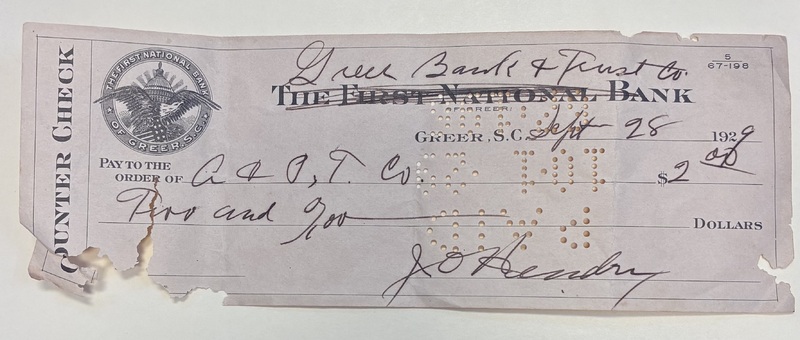 COUNTER CHECK
THE FIRST NATIONAL BANK
OF GREER, S.C.
Greer Bank & Trust Co.
THE FIRST NATIONAL BANK
OF GREER
5
67-198
GREER, S.C. Sept 28 1929
PAY TO THE
ORDER OF A & P, T. Co $2 00
Two and no/00 DOLLARS
PAID
J O Hendry